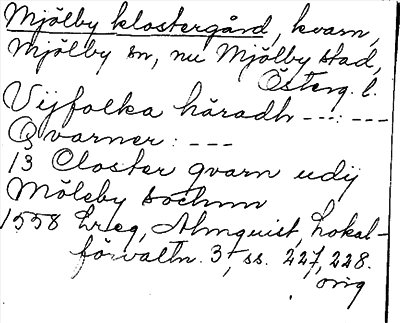 Mjölby klostergård, kvarn,
Mjölby sn, nu Mjölby stad,
Österg. l.
Vijfolka häradh ---:---
Qvarner: ---
13 Closter qvarn udij
Möleby sochnn
1558 Ereg, Almquist, Lokal-
förvaltn. 3, ss. 227, 228.
orig